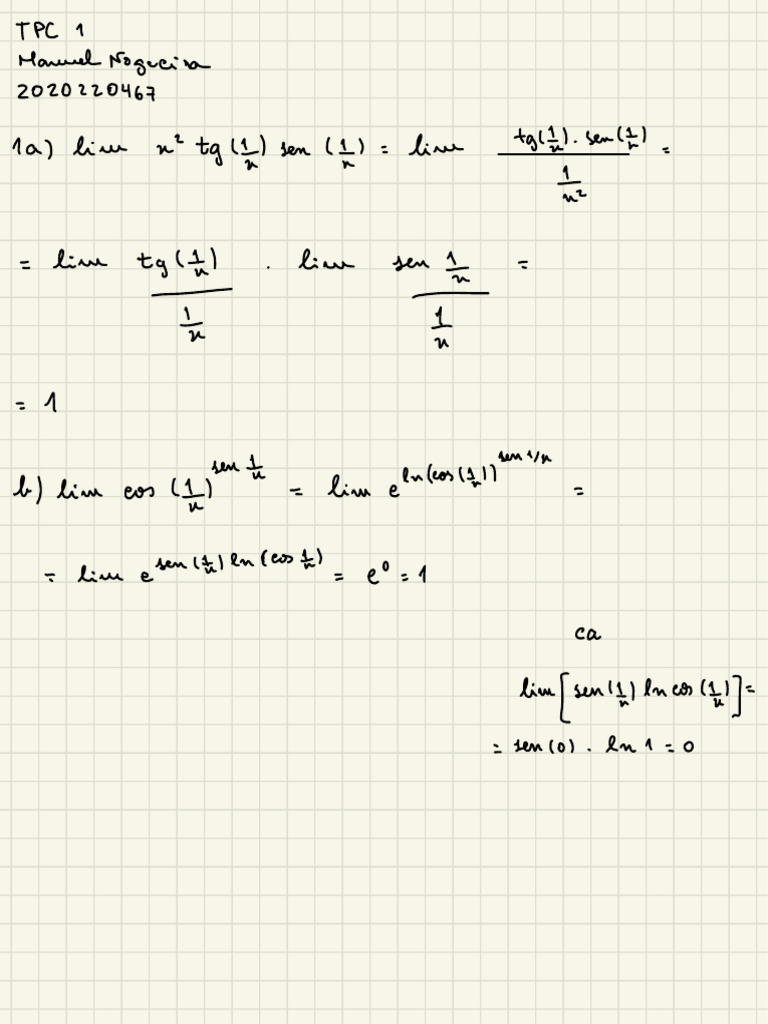 TPC 1
Manuel Nogueira
2020220467
1a) lim n² tg (1/n) sen (1/n) = lim (tg(1/n) . sen(1/n)) / (1/n²) =
= lim tg(1/n) / (1/n) . lim sen 1/n / (1/n) =
= 1
b) lim cos (1/n)^(sen 1/n) = lim e^(ln(cos(1/n))^(sen 1/n)) =
= lim e^(sen(1/n) ln(cos 1/n)) = e⁰ = 1
ca
lim [sen(1/n) ln cos (1/n)] =
= sen(0) . ln 1 = 0